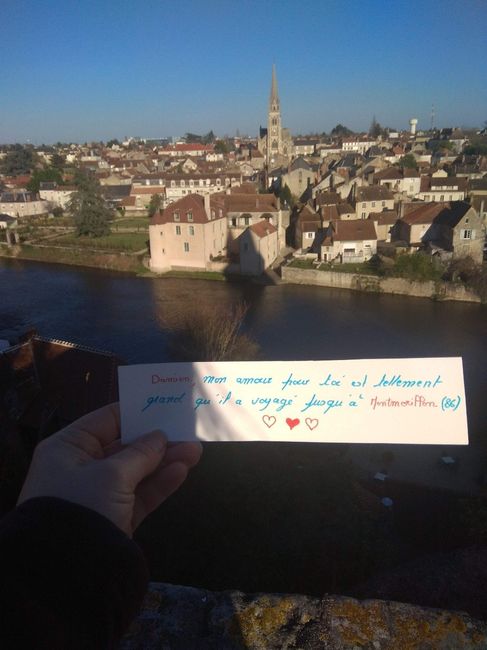 Damien, mon amour pour toi est tellement
grand qu'il a voyagé jusqu'à Montmorillon (86)